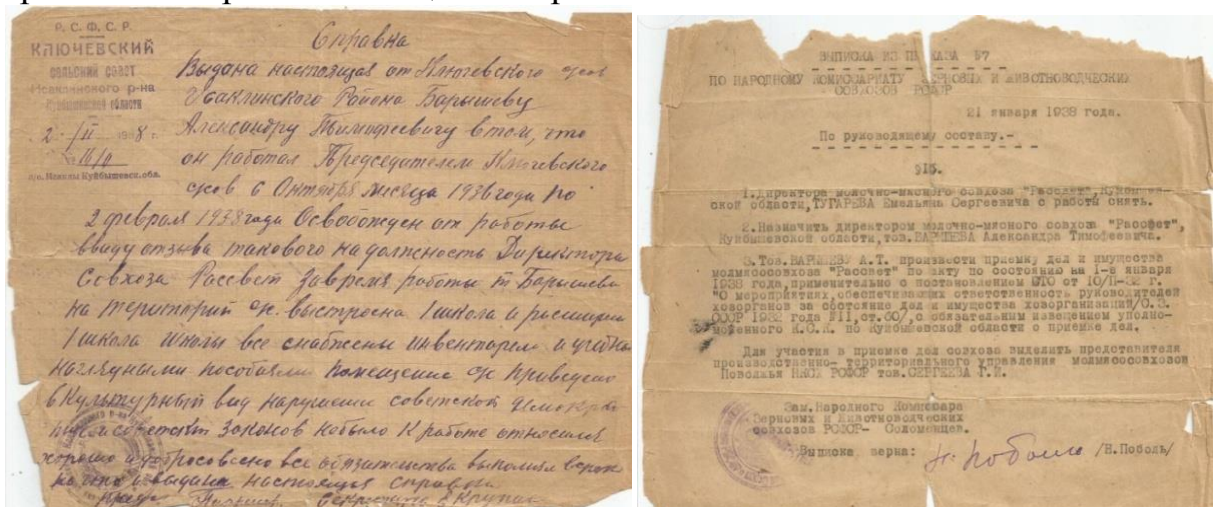 Р. С. Ф. С. Р.
КЛЮЧЕВСКИЙ
сельский совет
Исаклинского р-на
Куйбышевской области
2. II 1938 г.
№ 16/0
п/о. Исаклы Куйбышевск. обл.
Справка
Выдана настоящая от Ключевского
Исаклинского Района Барышеву
Александру Тимофеевичу в том, что
он работал Председателем Ключевского
с Октября месяца 1936 года по
2 февраля 1938 года Освобожден от работы
ввиду отзыва такового на должность Директора
Совхоза Рассвет За время работы т Барышева
на территории выстроена 1 школа и расширена
1 школа школы все снабжены инвентарем и учебно
наглядными пособиями Помещение приведено
в Культурный вид нарушении советской
советских Законов небыло К работе относился
хорошо и добросовестно все обязательства выполнял
выдана настоящая справка
Секретарь
ВЫПИСКА ИЗ ПРИКАЗА №7
ПО НАРОДНОМУ КОМИССАРИАТУ ЗЕРНОВЫХ И ЖИВОТНОВОДЧЕСКИХ
СОВХОЗОВ РСФСР
21 января 1938 года.
По руководящему составу.-
§15.
1.Директора молочно-мясного совхоза "Рассвет",Куйбышев-
ской области,ТУГАРЕВА Емельяна Сергеевича с работы снять.
2.Назначить директором молочно-мясного совхоза "Рассвет",
Куйбышевской области,тов.БАРЫШЕВА Александра Тимофеевича.
3.Тов.БАРЫШЕВУ А.Т. произвести приемку дел и имущества
молмясосовхоза "Рассвет" по акту по состоянию на I-е января
1938 года,применительно с постановлением СТО от 10/II-32 г.
"О мероприятиях,обеспечивающих ответственность руководителей
хозорганов за состояние дел и имущества хозорганизаций/С.З.
СССР 1932 года №11,ст.60/,с обязательным извещением уполно-
моченного К.С.К. по Куйбышевской области о приемке дел.
Для участия в приемке дел совхоза выделить представителя
производственно- территориального управления молмясосовхозов
Поволжья НКСХ РСФСР тов.СЕРГЕЕВА Г.И.
Зам.Народного Комиссара
Зерновых и Животноводческих
совхозов РСФСР- Соломенцев.
Выписка верна: Н. Поболь /Н.Поболь/